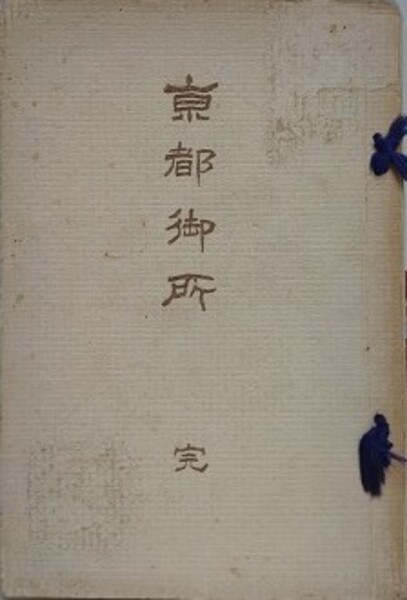 京都御所 完